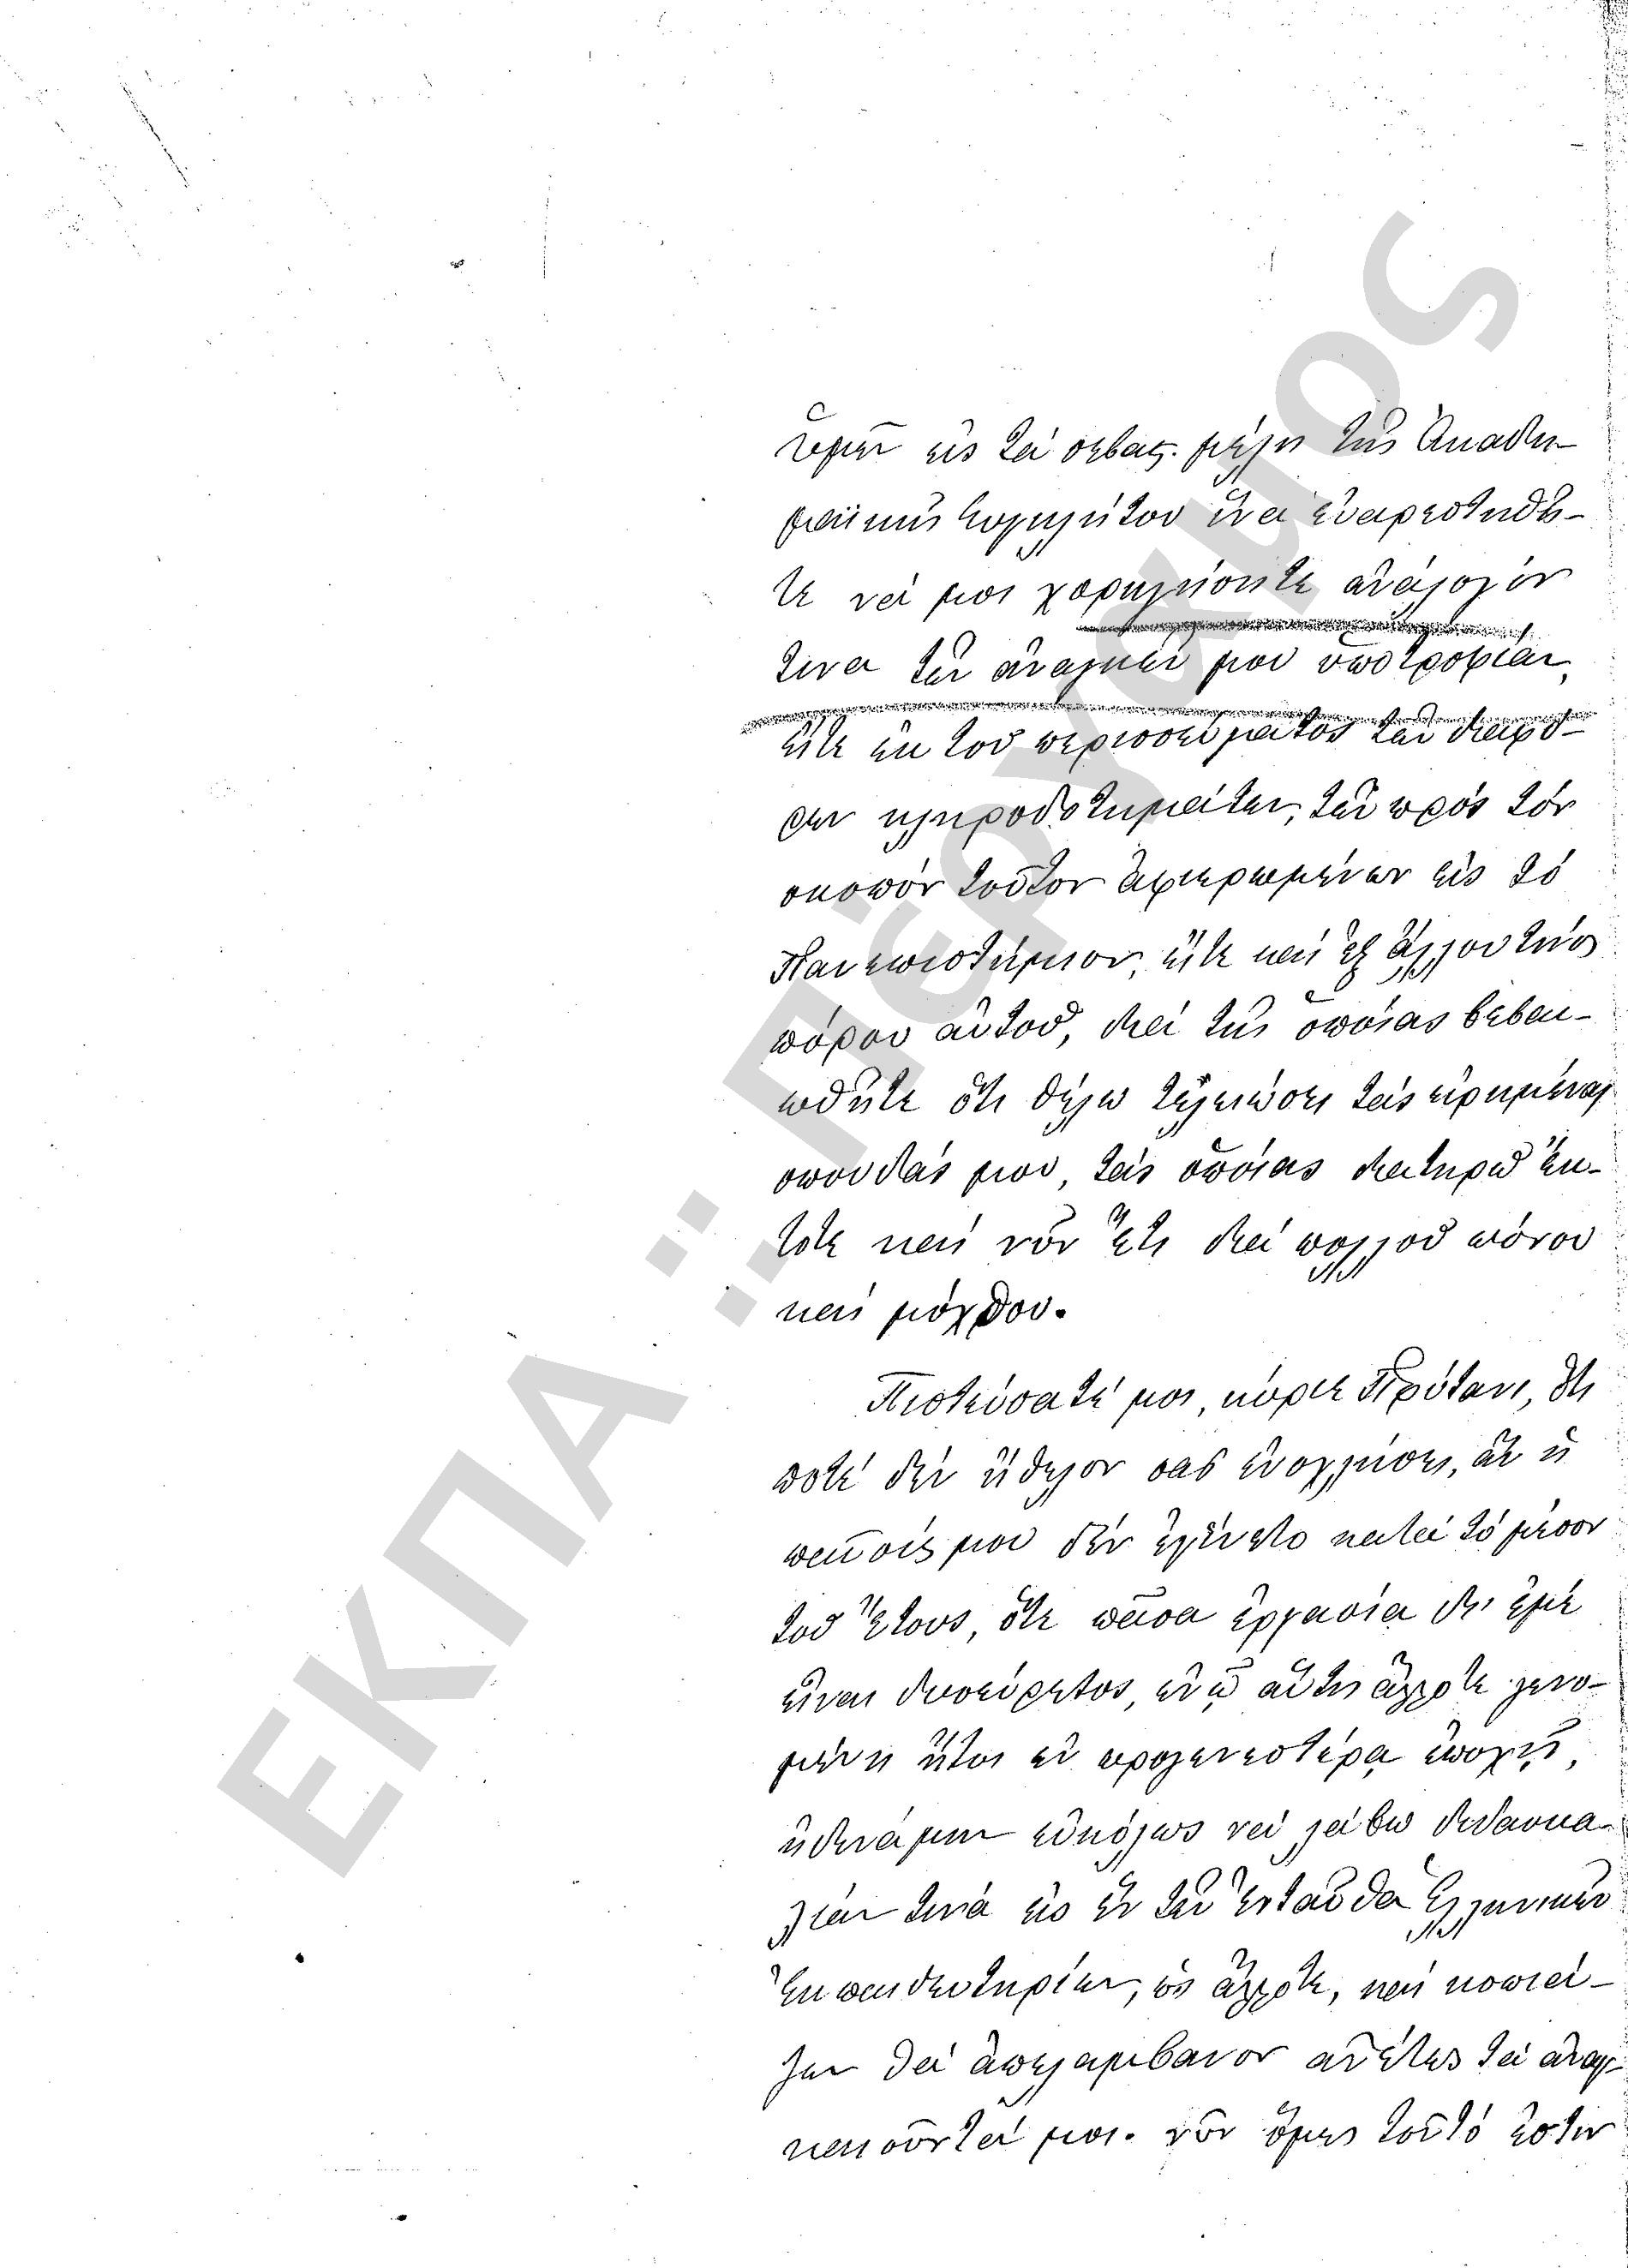 ὑμῶν εἰς τὰ σεβασ. μέλη τῆς Ἀκαδη-
μαϊκῆς Συγκλήτου ἵνα εὐαρεστηθῆ-
τε νά μοι χορηγήσητε ἀνάλογόν
τινα τῶν ἀναγκῶν μου ὑποτροφίαν,
εἴτε ἐκ τοῦ περισσεύματος τῶν διαφό-
ρων κληροδοτημάτων, τῶν πρὸς τὸν
σκοπὸν τοῦτον ἀφιερωμένων εἰς τὸ
Πανεπιστήμιον, εἴτε καὶ ἐξ ἄλλου τινὸς
πόρου αὐτοῦ, διὰ τῆς ὁποίας βεβαι-
ωθῆτε ὅτι θέλω τελειώσει τὰς εἰρημένας
σπουδάς μου, τὰς ὁποίας διατηρῶ ἔκ-
τοτε καὶ νῦν ἔτι διὰ πολλοῦ πόνου
καὶ μόχθου.
Πιστεύσατέ μοι, κύριε Πρύτανι, ὅτι
ποτὲ δὲν ἤθελον σᾶς ἐνοχλήσει, ἂν ἡ
παῦσίς μου δὲν ἐγίνετο κατὰ τὸ μέσον
τοῦ ἔτους, ὅτε πᾶσα ἐργασία δι' ἐμὲ
εἶναι δυσεύρετος, ἐνῷ αὕτη ἄλλοτε γενο-
μένη ἤτοι ἐν προγενεστέρᾳ ἐποχῇ,
ἠδυνάμην εὐκόλως νὰ λάβω διδασκα-
λίαν τινὰ εἰς ἓν τῶν ἐνταῦθα Ἑλληνικῶν
Ἐκπαιδευτηρίων, ὡς ἄλλοτε, καὶ κοπιά-
ζων θὰ ἀπελάμβανον ἀνέτως τὰ ἀναγ-
καιοῦντά μοι. νῦν ὅμως τοῦτό ἐστιν
ΕΚΠΑ :: Πέργαμος